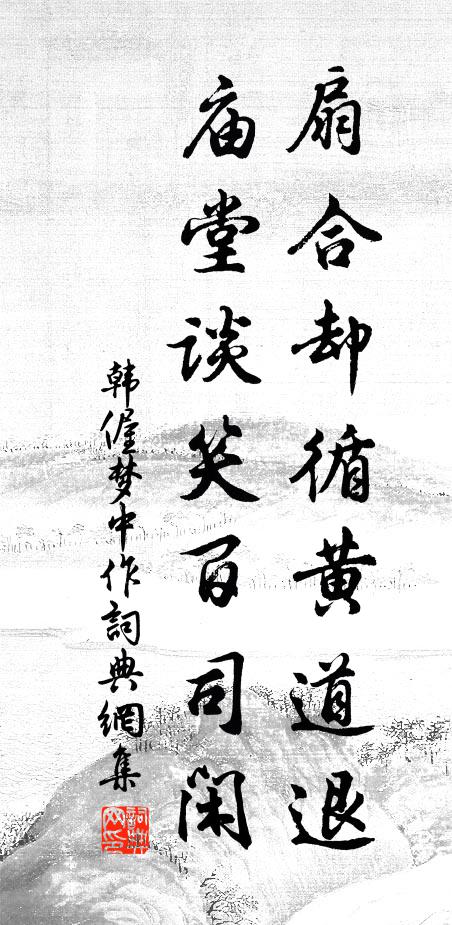 扇合却循黄道退
庙堂谈笑百司闲
韩偓梦中作詞典網集